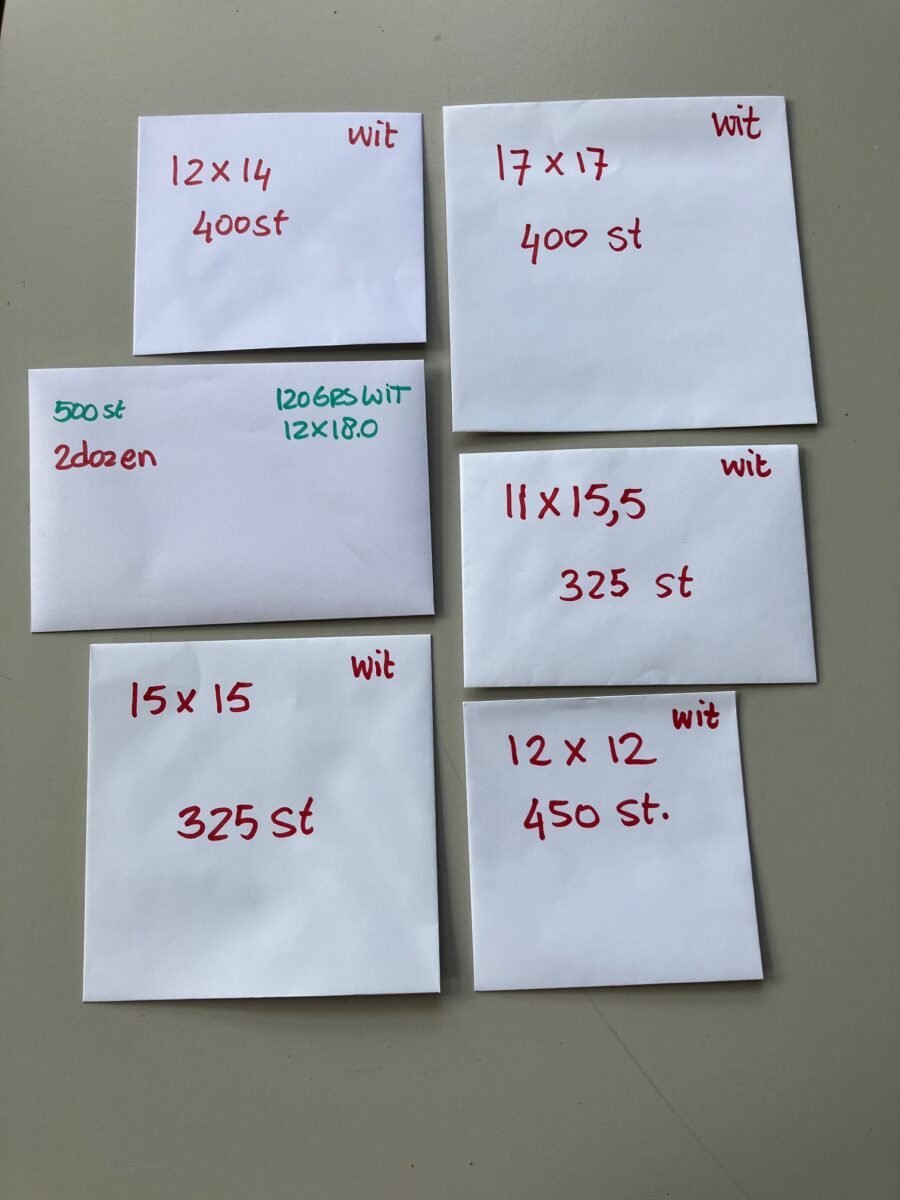 wit
12 x 14
400 st
wit
17 x 17
400 st
500 st
2 dozen
120 GRS WIT
12 X 18.0
wit
11 x 15,5
325 st
wit
15 x 15
325 st
wit
12 x 12
450 st.